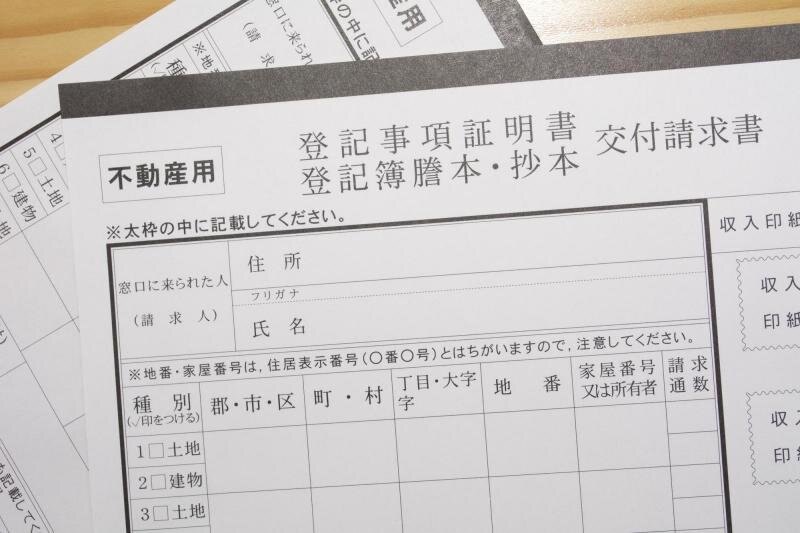 不動産用
登記事項証明書
登記簿謄本・抄本
交付請求書
※太枠の中に記載してください。
窓口に来られた人
(請求人)
住所
フリガナ
氏名
収入印紙
収入
印紙
※地番・家屋番号は，住居表示番号(〇番〇号)とはちがいますので，注意してください。
種別
(√印をつける)
郡・市・区
町・村
丁目・大字
字
地番
家屋番号
又は所有者
請求
通数
1□土地
2□建物
3□土地
収入
印紙
産用
枠の中に記
窓口に来られ
(請求
※地
種
5□土地
6□建物
記載してく